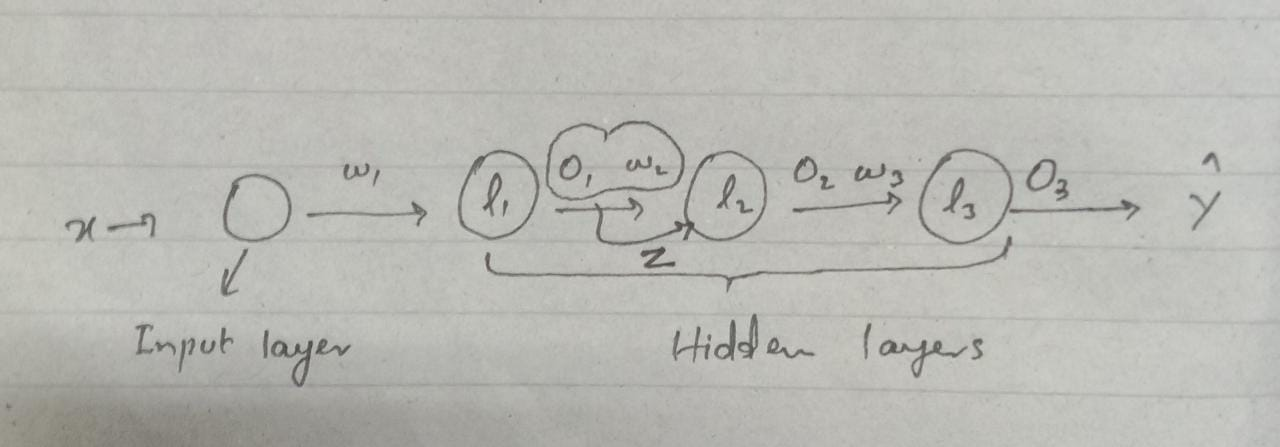 x → w₁ l₁ O₁ w₂ l₂ O₂ w₃ l₃ O₃ ŷ
z
Input layer Hidden layers